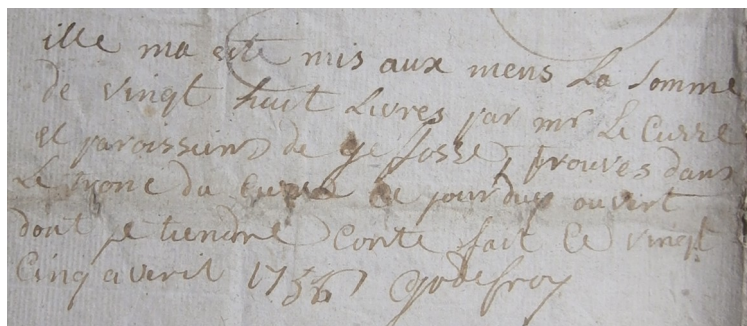 ille ma este mis aux mens La somme
de vingt huit Livres par mr Le Curre
et paroissiens de gefosse, trouves dans
Le tronc du Curre ce jourduy ouvert
dont je tiendre Conte fait Ce vingt
Cinq averil 1756 Godefroy